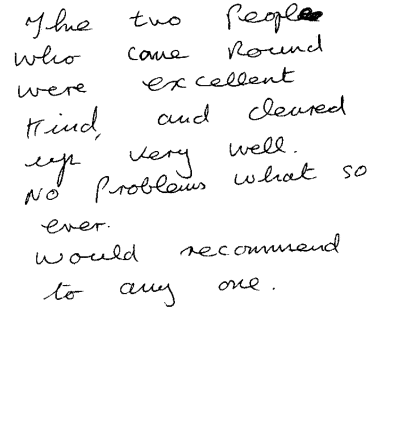 The two People
who came Round
were excellent
Kind, and cleared
up very well.
No Problems what so
ever.
would recommend
to any one.